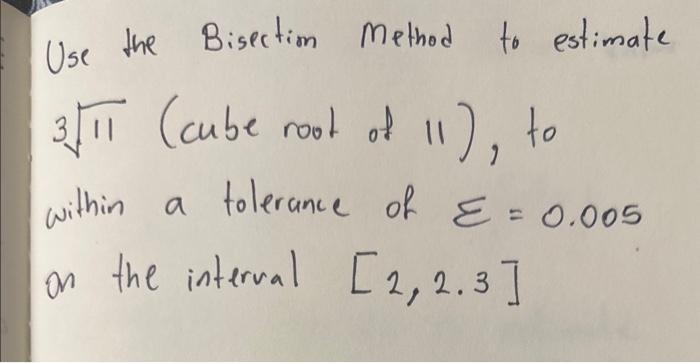 Use the Bisection Method to estimate
∛11 (cube root of 11), to
within a tolerance of ε = 0.005
on the interval [2, 2.3]